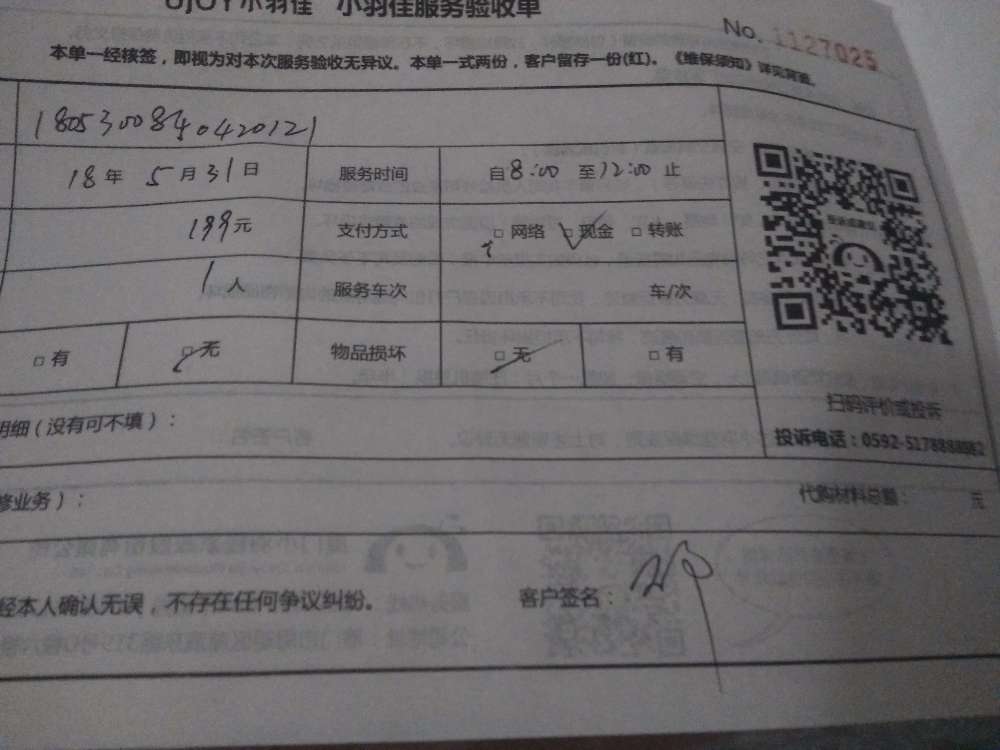 UJOY小羽佳 小羽佳服务验收单
No. 1127025
本单一经核签，即视为对本次服务验收无异议。本单一式两份，客户留存一份(红)。《维保须知》详见背面
1805300840420121
18年 5月31日 服务时间 自8:00 至12:00 止
199元 支付方式 □网络 □现金 □转账
1人 服务车次 车/次
□有 □无 物品损坏 □无 □有
扫码评价或投诉
明细（没有可不填）：
投诉电话：0592-5178888
修业务）：
代购材料总额： 元
经本人确认无误，不存在任何争议纠纷。
客户签名：